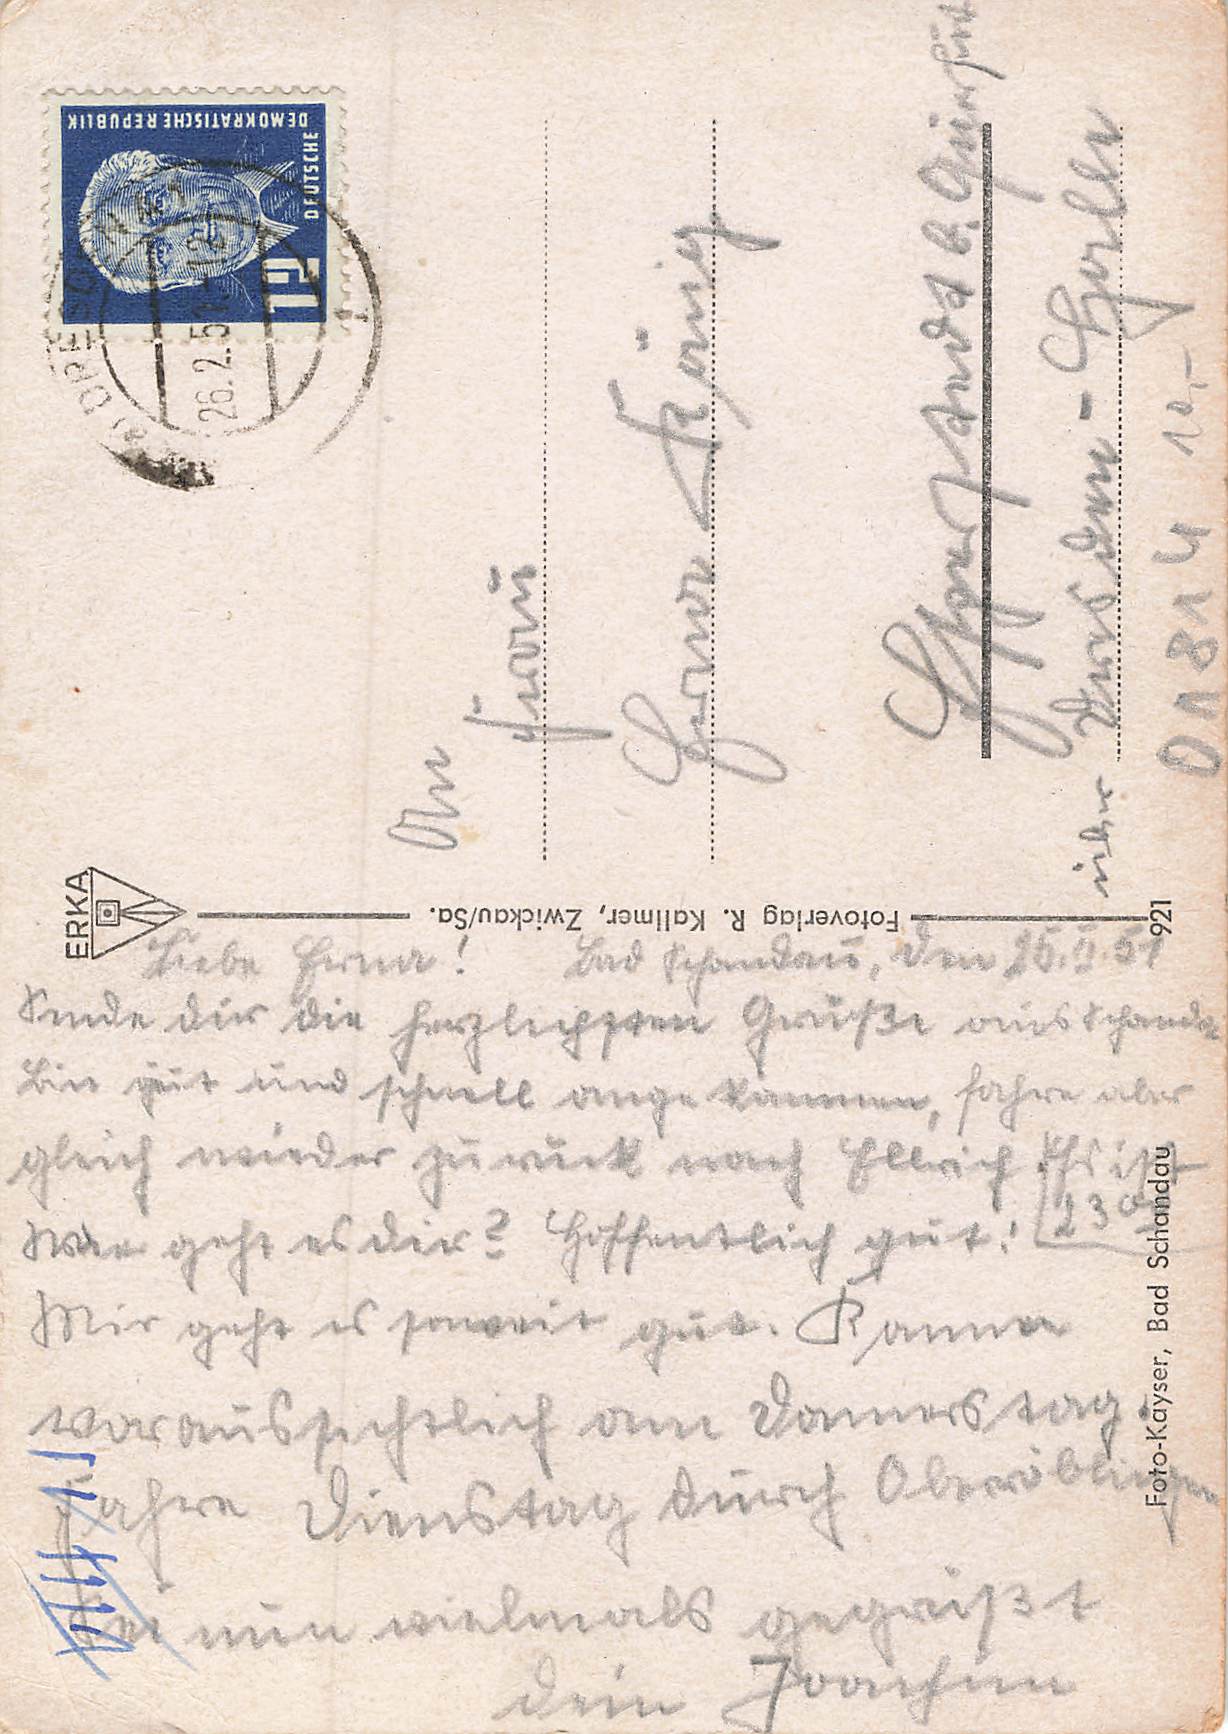 DEUTSCHE
DEMOKRATISCHE REPUBLIK
12
DRESDEN
28.2.51.-12
An
Frau
Erna König
b. Querfurt
über
0181 4 10,-
ERKA
Fotoverlag R. Kallmer, Zwickau/Sa.
921
Foto-Kayser, Bad Schandau
Liebe Erna! Bad Schandau, den 25.2.51
Sende dir die herzlichsten Grüße aus Schandau
Bin gut und schnell angekommen, fahre aber
gleich wieder zurück nach Ellrich. Es ist
23 00
Wie geht es dir? Hoffentlich gut!
Mir geht es soweit gut. Komme
voraussichtlich am Donnerstag.
Fahre Dienstag durch Oberröblingen
Sei nun vielmals gegrüßt
dein Joachim